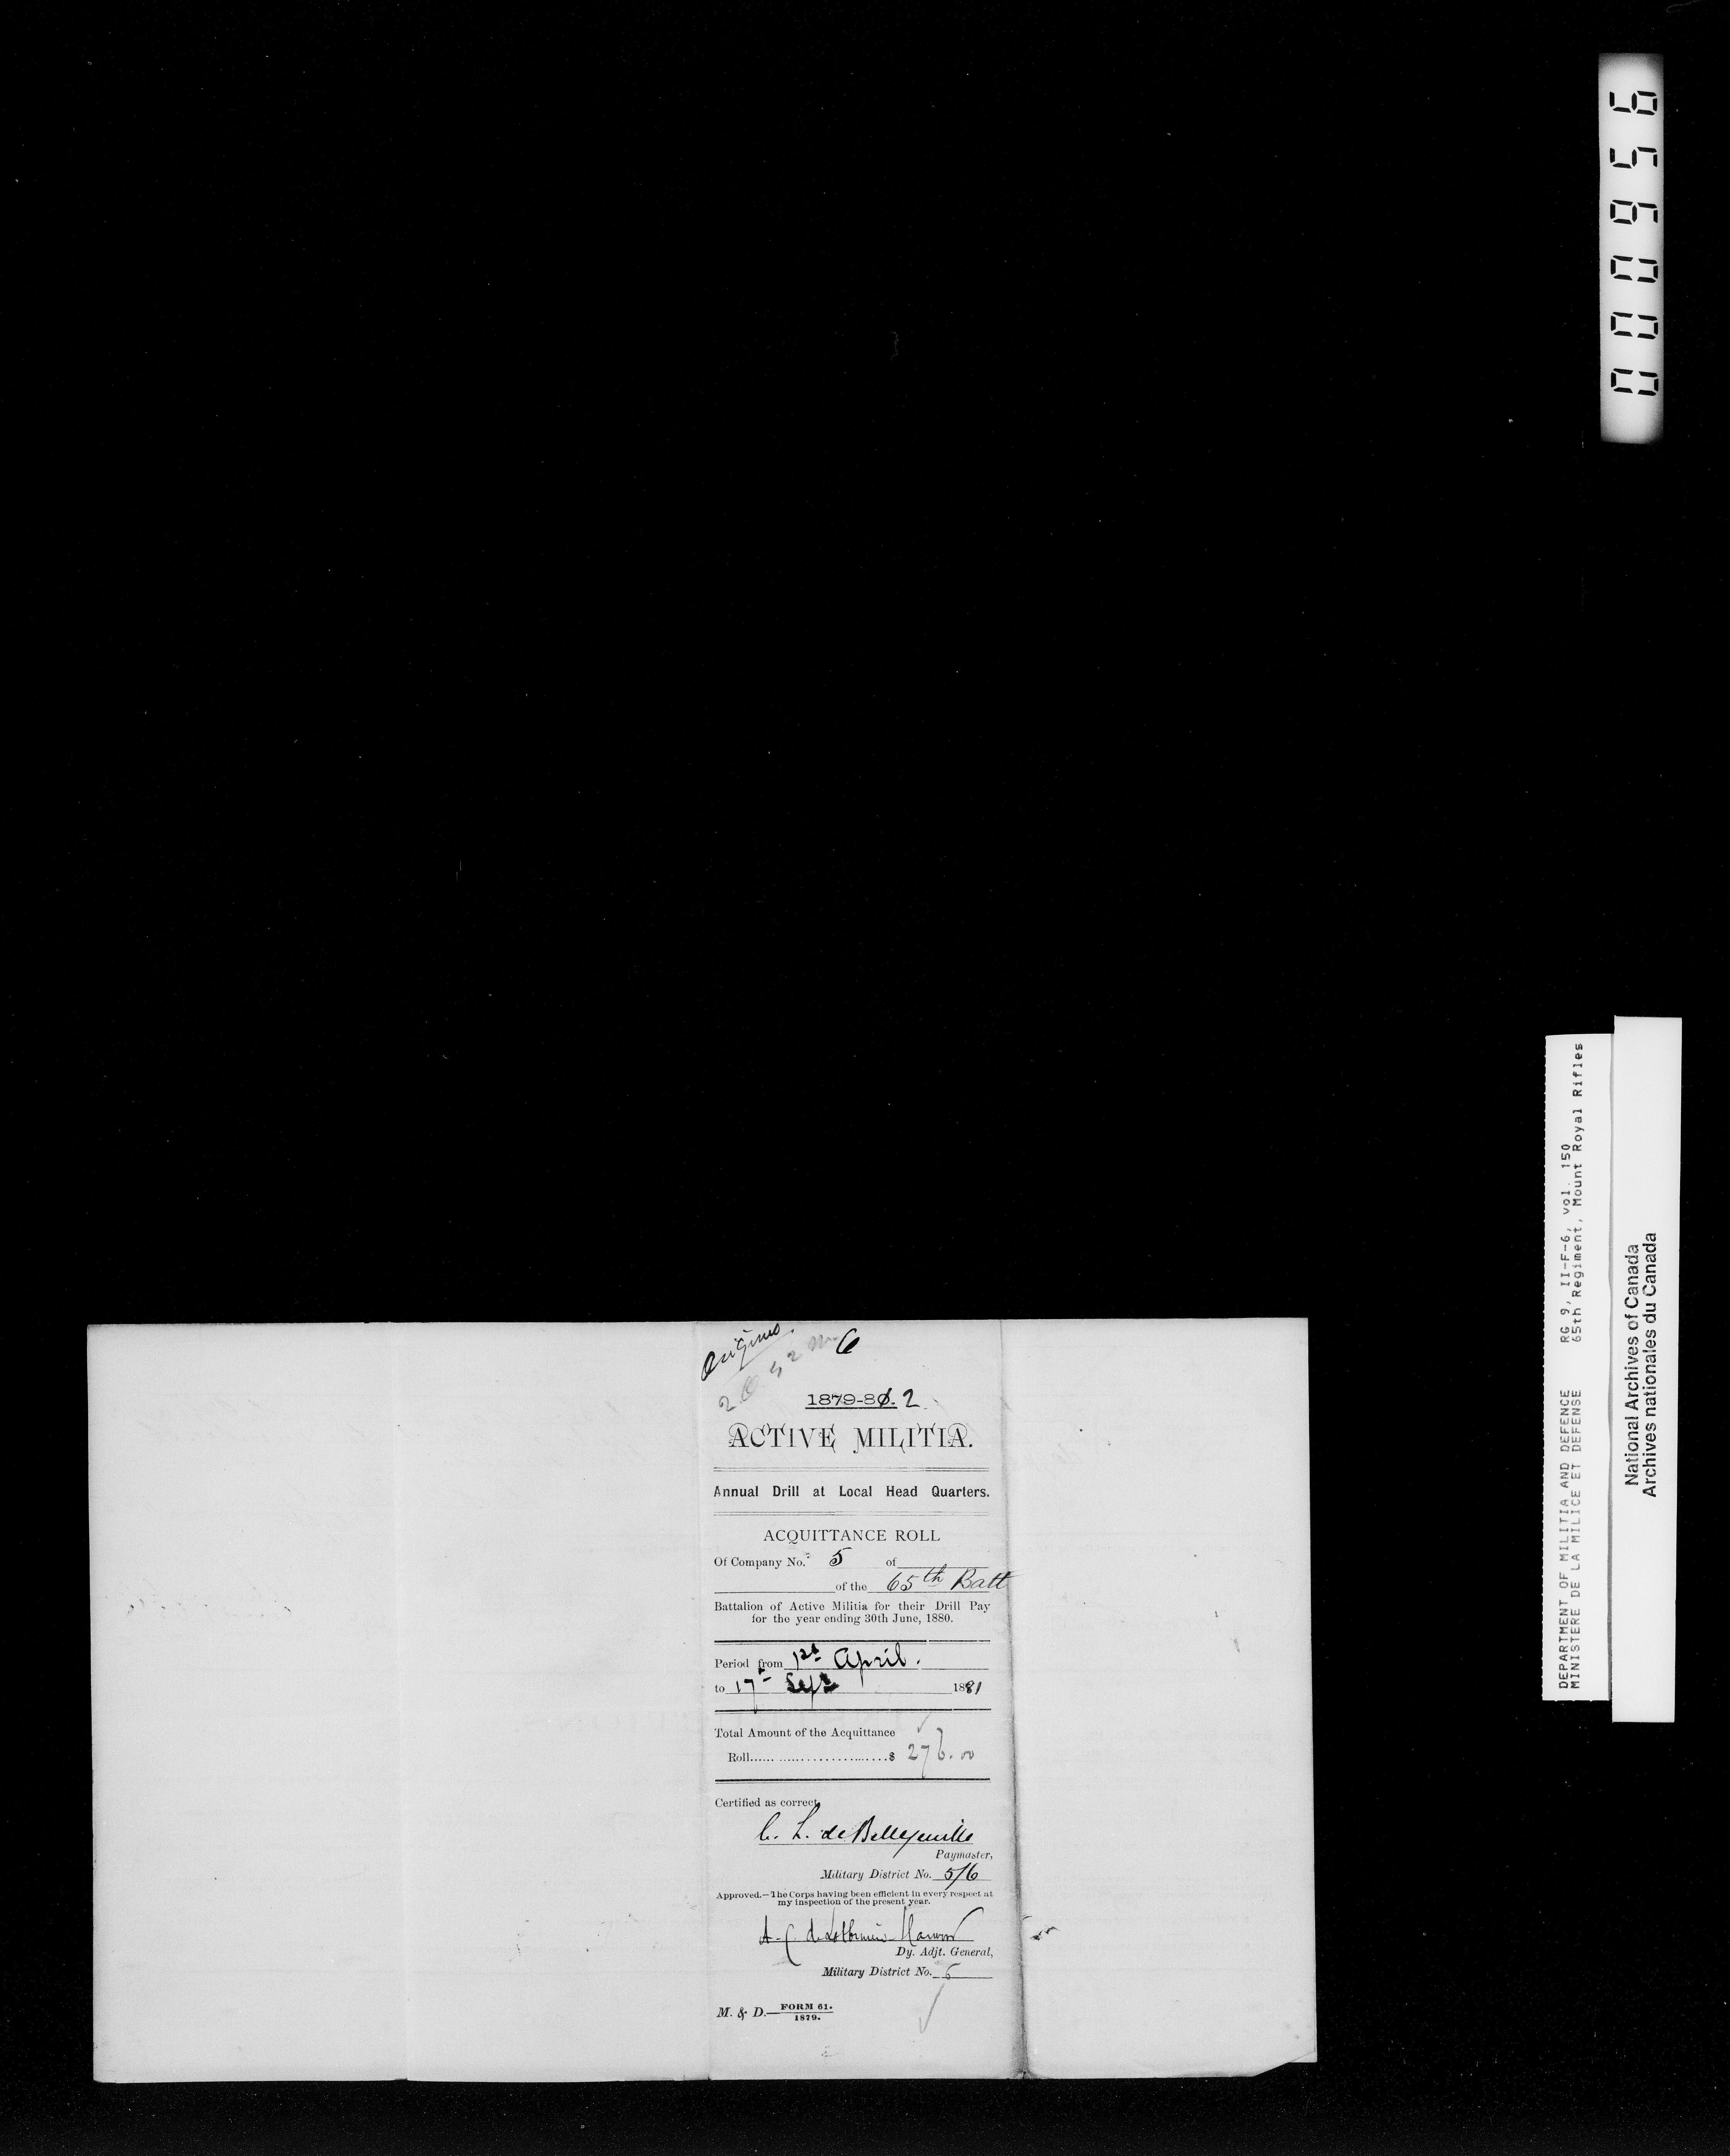 000956
DEPARTMENT OF MILITIA AND DEFENCE RG 9, II-F-6, vol. 150
MINISTERE DE LA MILICE ET DEFENSE 65th Regiment, Mount Royal Rifles
National Archives of Canada
Archives nationales du Canada
6
1879-80. 2
ACTIVE MILITIA.
Annual Drill at Local Head Quarters.
ACQUITTANCE ROLL
Of Company No. 5 of
of the 65th Batt
Battalion of Active Militia for their Drill Pay
for the year ending 30th June, 1880.
Period from 1st April.
to 17th Sept 1881
Total Amount of the Acquittance
Roll....................$ 276.00
Certified as correct,
C. L. de Bellefeuille
Paymaster,
Military District No. 5/6
Approved.—The Corps having been efficient in every respect at
my inspection of the present year.
A. C. de Lotbinière-Harwood
Dy. Adjt. General,
Military District No. 6
M. & D.—FORM 61.
1879.